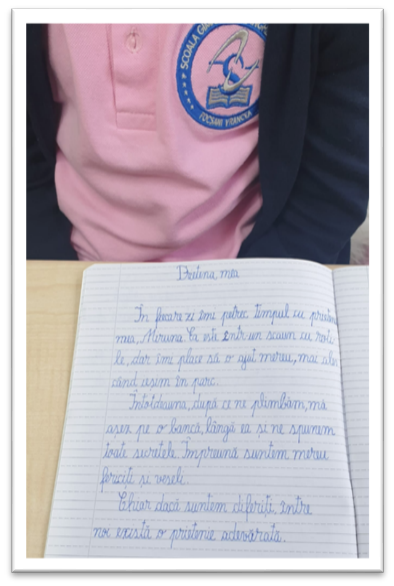 ȘCOALA GI
FOCȘANI VRANCEA
Prietena mea
În fiecare zi îmi petrec timpul cu prietena
mea, Miruna. Ea este într-un scaun cu roti-
le, dar îmi place să o ajut mereu, mai ales
când ieșim în parc.
Întotdeauna, după ce ne plimbăm, mă
așez pe o bancă, lângă ea și ne spunem
toate secretele. Împreună suntem mereu
fericite și vesele.
Chiar dacă suntem diferite, între
noi există o prietenie adevărată.